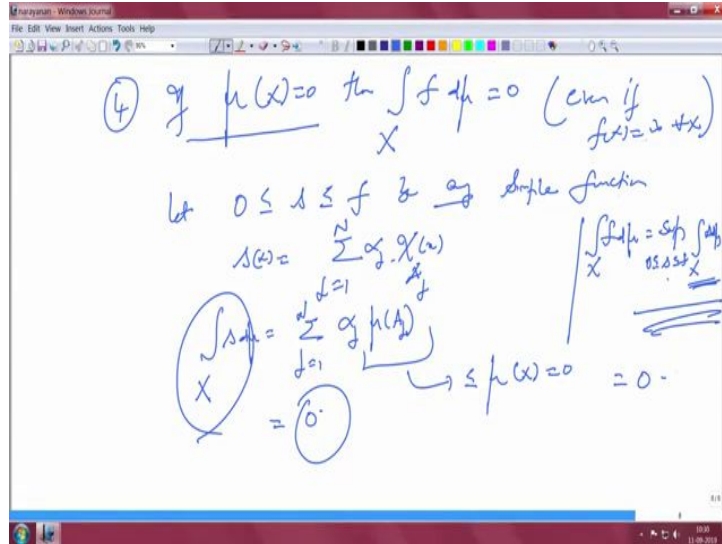 narayanan - Windows Journal
File Edit View Insert Actions Tools Help
④ If μ(X)=0 then ∫_X f dμ = 0 (even if
f(x)=∞ ∀x)
Let 0 ≤ s ≤ f be any simple function
s(x) = Σ_{j=1}^{N} α_j χ_{A_j}(x)
∫_X f dμ = Sup_{0≤s≤f} ∫_X s dμ
∫_X s dμ = Σ_{j=1}^{N} α_j μ(A_j)
↳ ≤ μ(X) = 0 = 0.
= 0.
8/8
10:30
11-09-2018